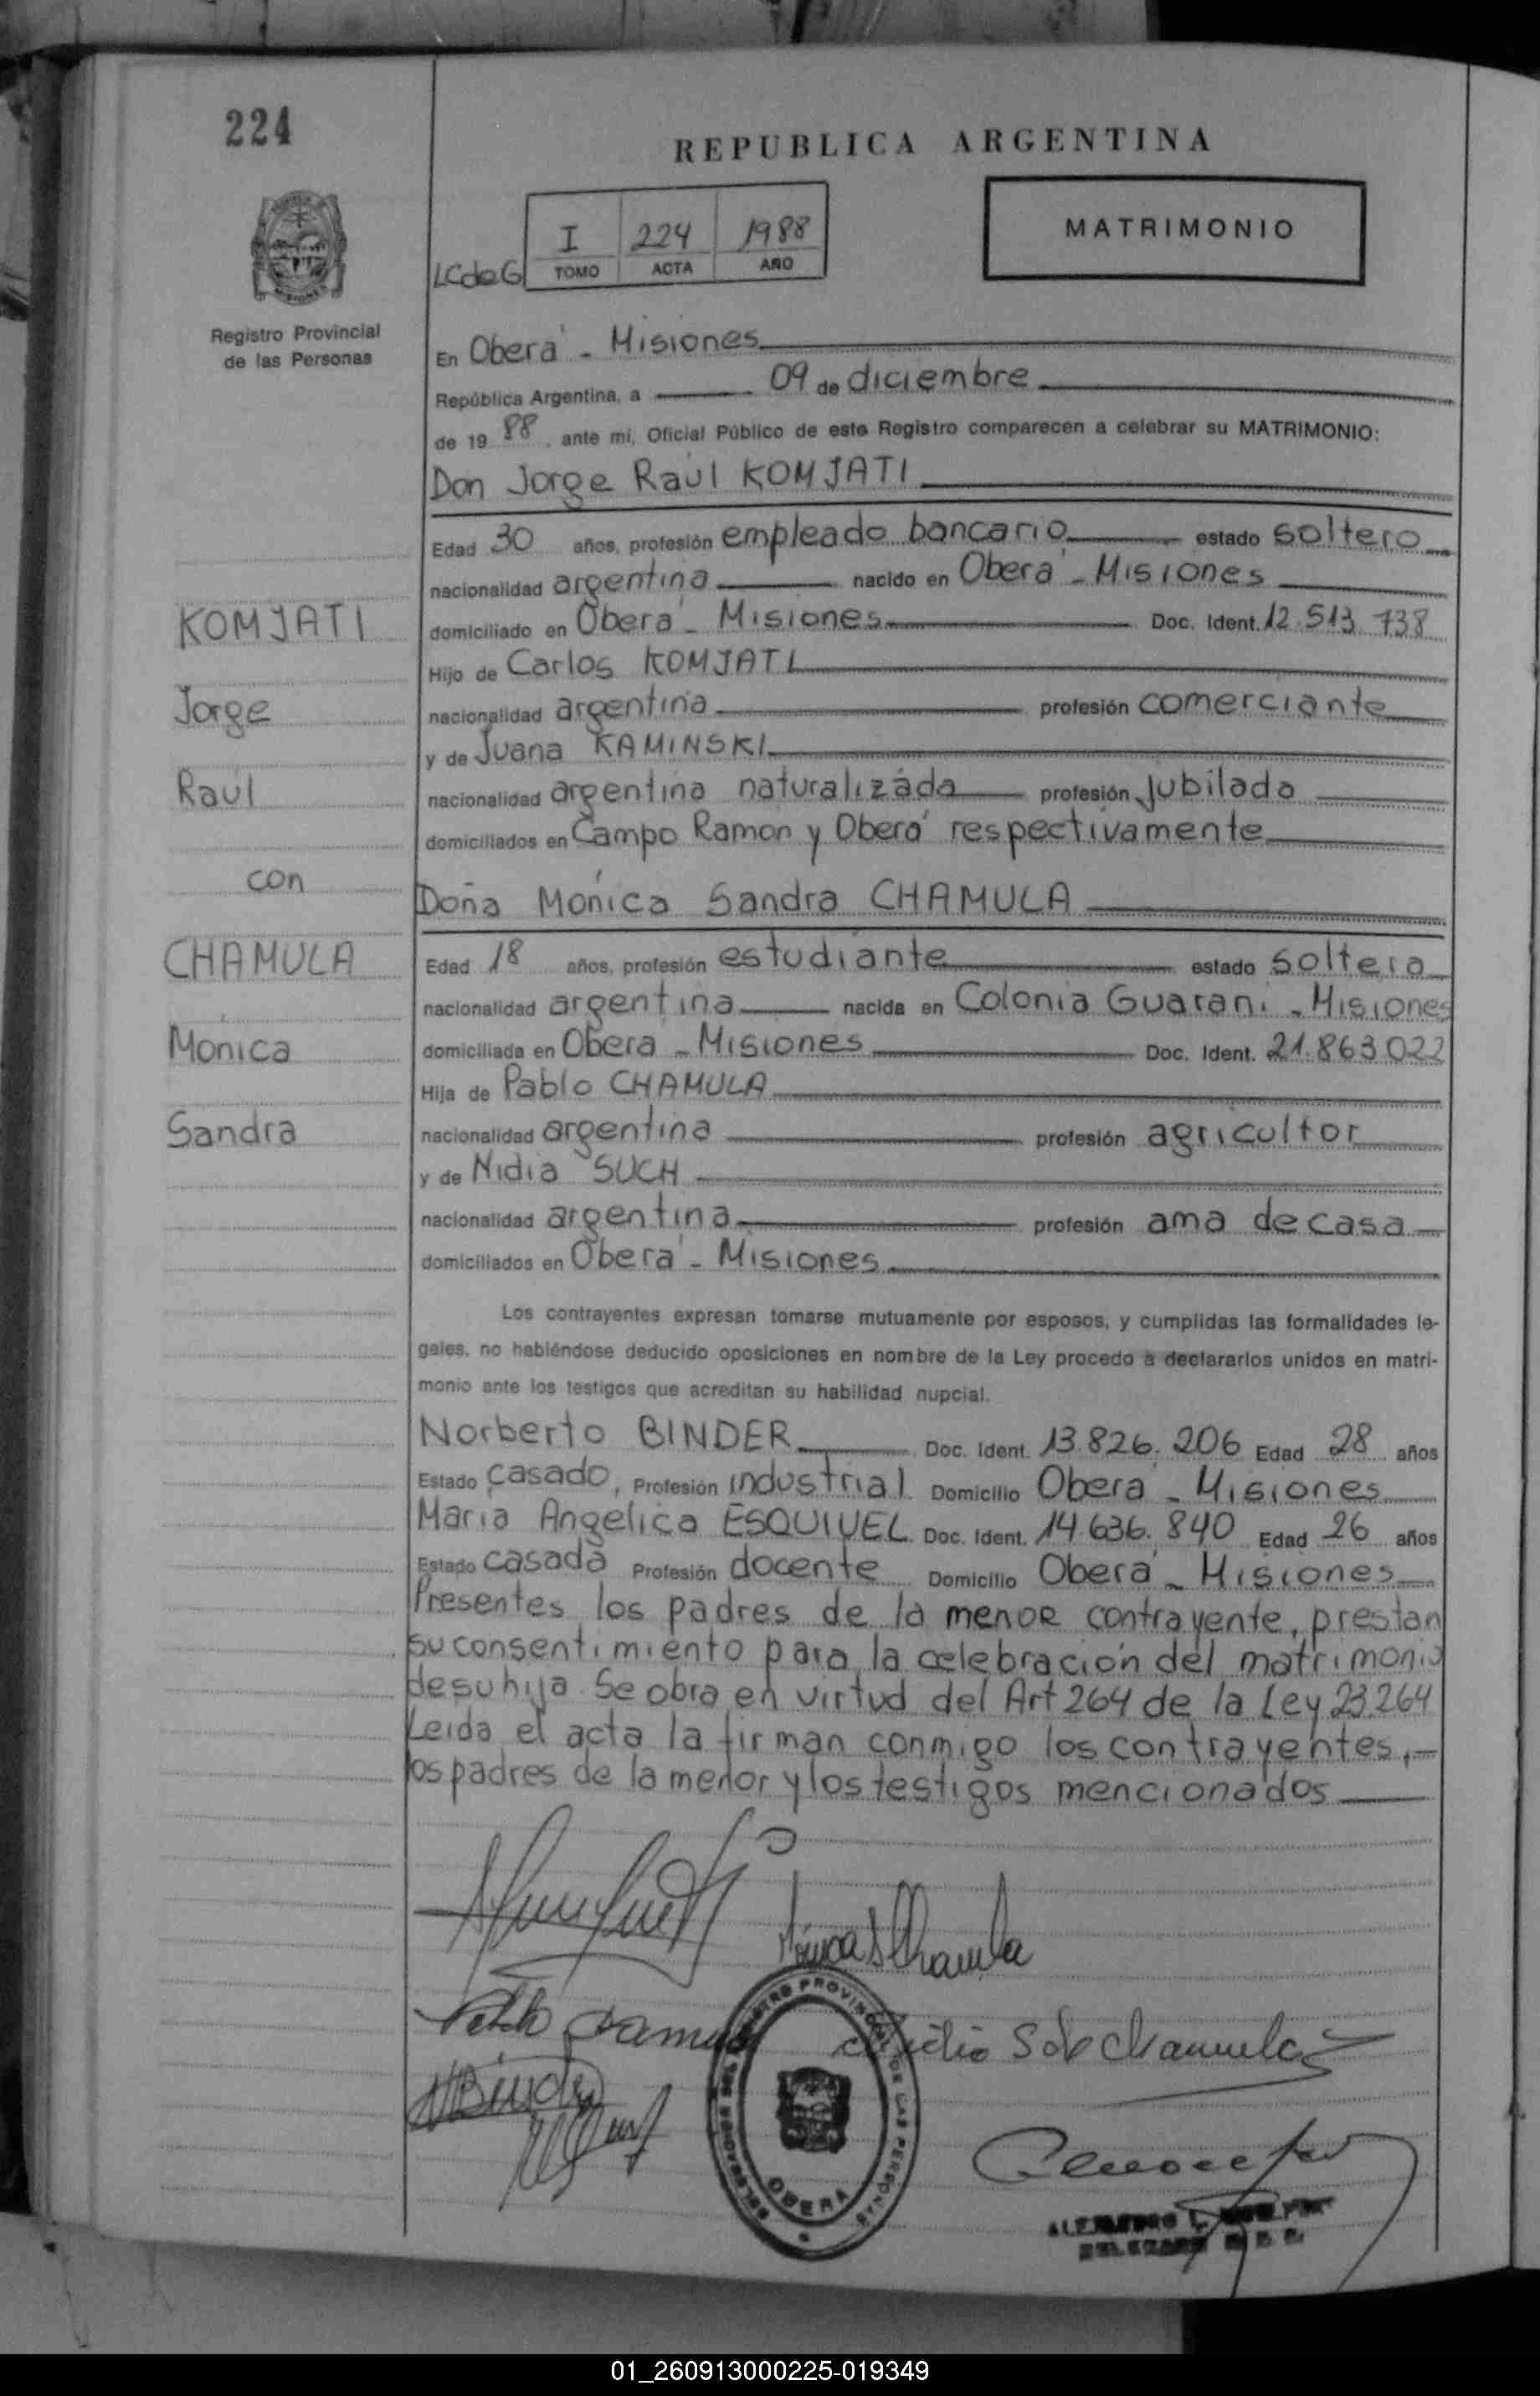 224
REPUBLICA ARGENTINA
MATRIMONIO
I 224 1988
LCdeG TOMO ACTA AÑO
Registro Provincial
de las Personas
En Oberá - Misiones
República Argentina, a 09 de diciembre
de 19 88, ante mí, Oficial Público de este Registro comparecen a celebrar su MATRIMONIO:
Don Jorge Raúl KOMJATI
Edad 30 años, profesión empleado bancario estado soltero
nacionalidad argentina nacido en Oberá - Misiones
KOMJATI
domiciliado en Oberá - Misiones Doc. Ident. 12.513.738
Hijo de Carlos KOMJATI
Jorge
nacionalidad argentina profesión comerciante
y de Juana KAMINSKI
Raúl
nacionalidad argentina naturalizada profesión jubilada
domiciliados en Campo Ramón y Oberá respectivamente
con
Doña Mónica Sandra CHAMULA
CHAMULA
Edad 18 años, profesión estudiante estado soltera
nacionalidad argentina nacida en Colonia Guaraní - Misiones
Mónica
domiciliada en Oberá - Misiones Doc. Ident. 21.863.022
Hija de Pablo CHAMULA
Sandra
nacionalidad argentina profesión agricultor
y de Nidia SUCH
nacionalidad argentina profesión ama de casa
domiciliados en Oberá - Misiones
Los contrayentes expresan tomarse mutuamente por esposos, y cumplidas las formalidades le-
gales, no habiéndose deducido oposiciones en nombre de la Ley procedo a declararlos unidos en matri-
monio ante los testigos que acreditan su habilidad nupcial.
Norberto BINDER Doc. Ident. 13.826.206 Edad 28 años
Estado casado, Profesión industrial Domicilio Oberá - Misiones
María Angelica ESQUIVEL Doc. Ident. 14.636.840 Edad 26 años
Estado casada Profesión docente Domicilio Oberá - Misiones
Presentes los padres de la menor contrayente, prestan
su consentimiento para la celebración del matrimonio
de su hija. Se obra en virtud del Art 264 de la Ley 23.264
Leída el acta la firman conmigo los contrayentes,
los padres de la menor y los testigos mencionados
Mónica S Chamula
Pablo
S de Chamula
NBinder
REGISTRO PROVINCIAL DE LAS PERSONAS
OBERA
01_260913000225-019349